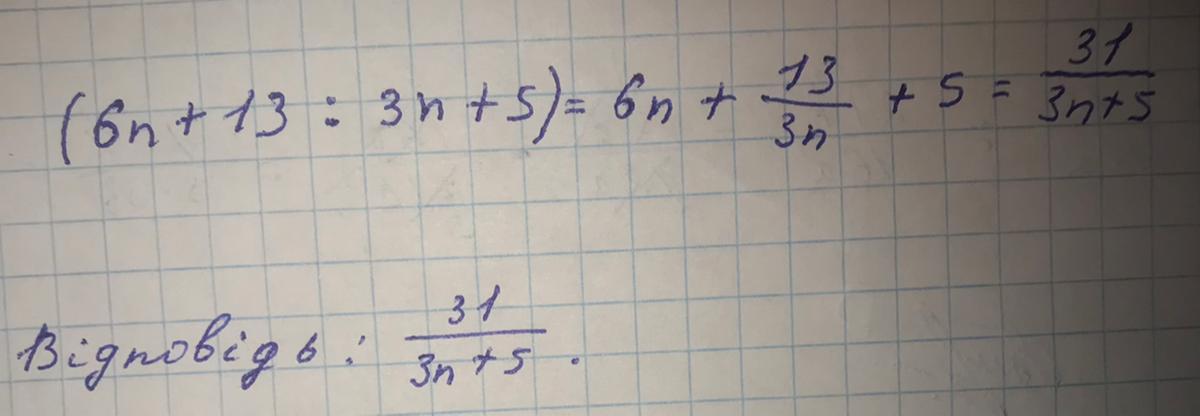 (6n + 13 : 3n + 5) = 6n + 13/3n + 5 = 31/3n+5
Відповідь : 31/3n+5 .